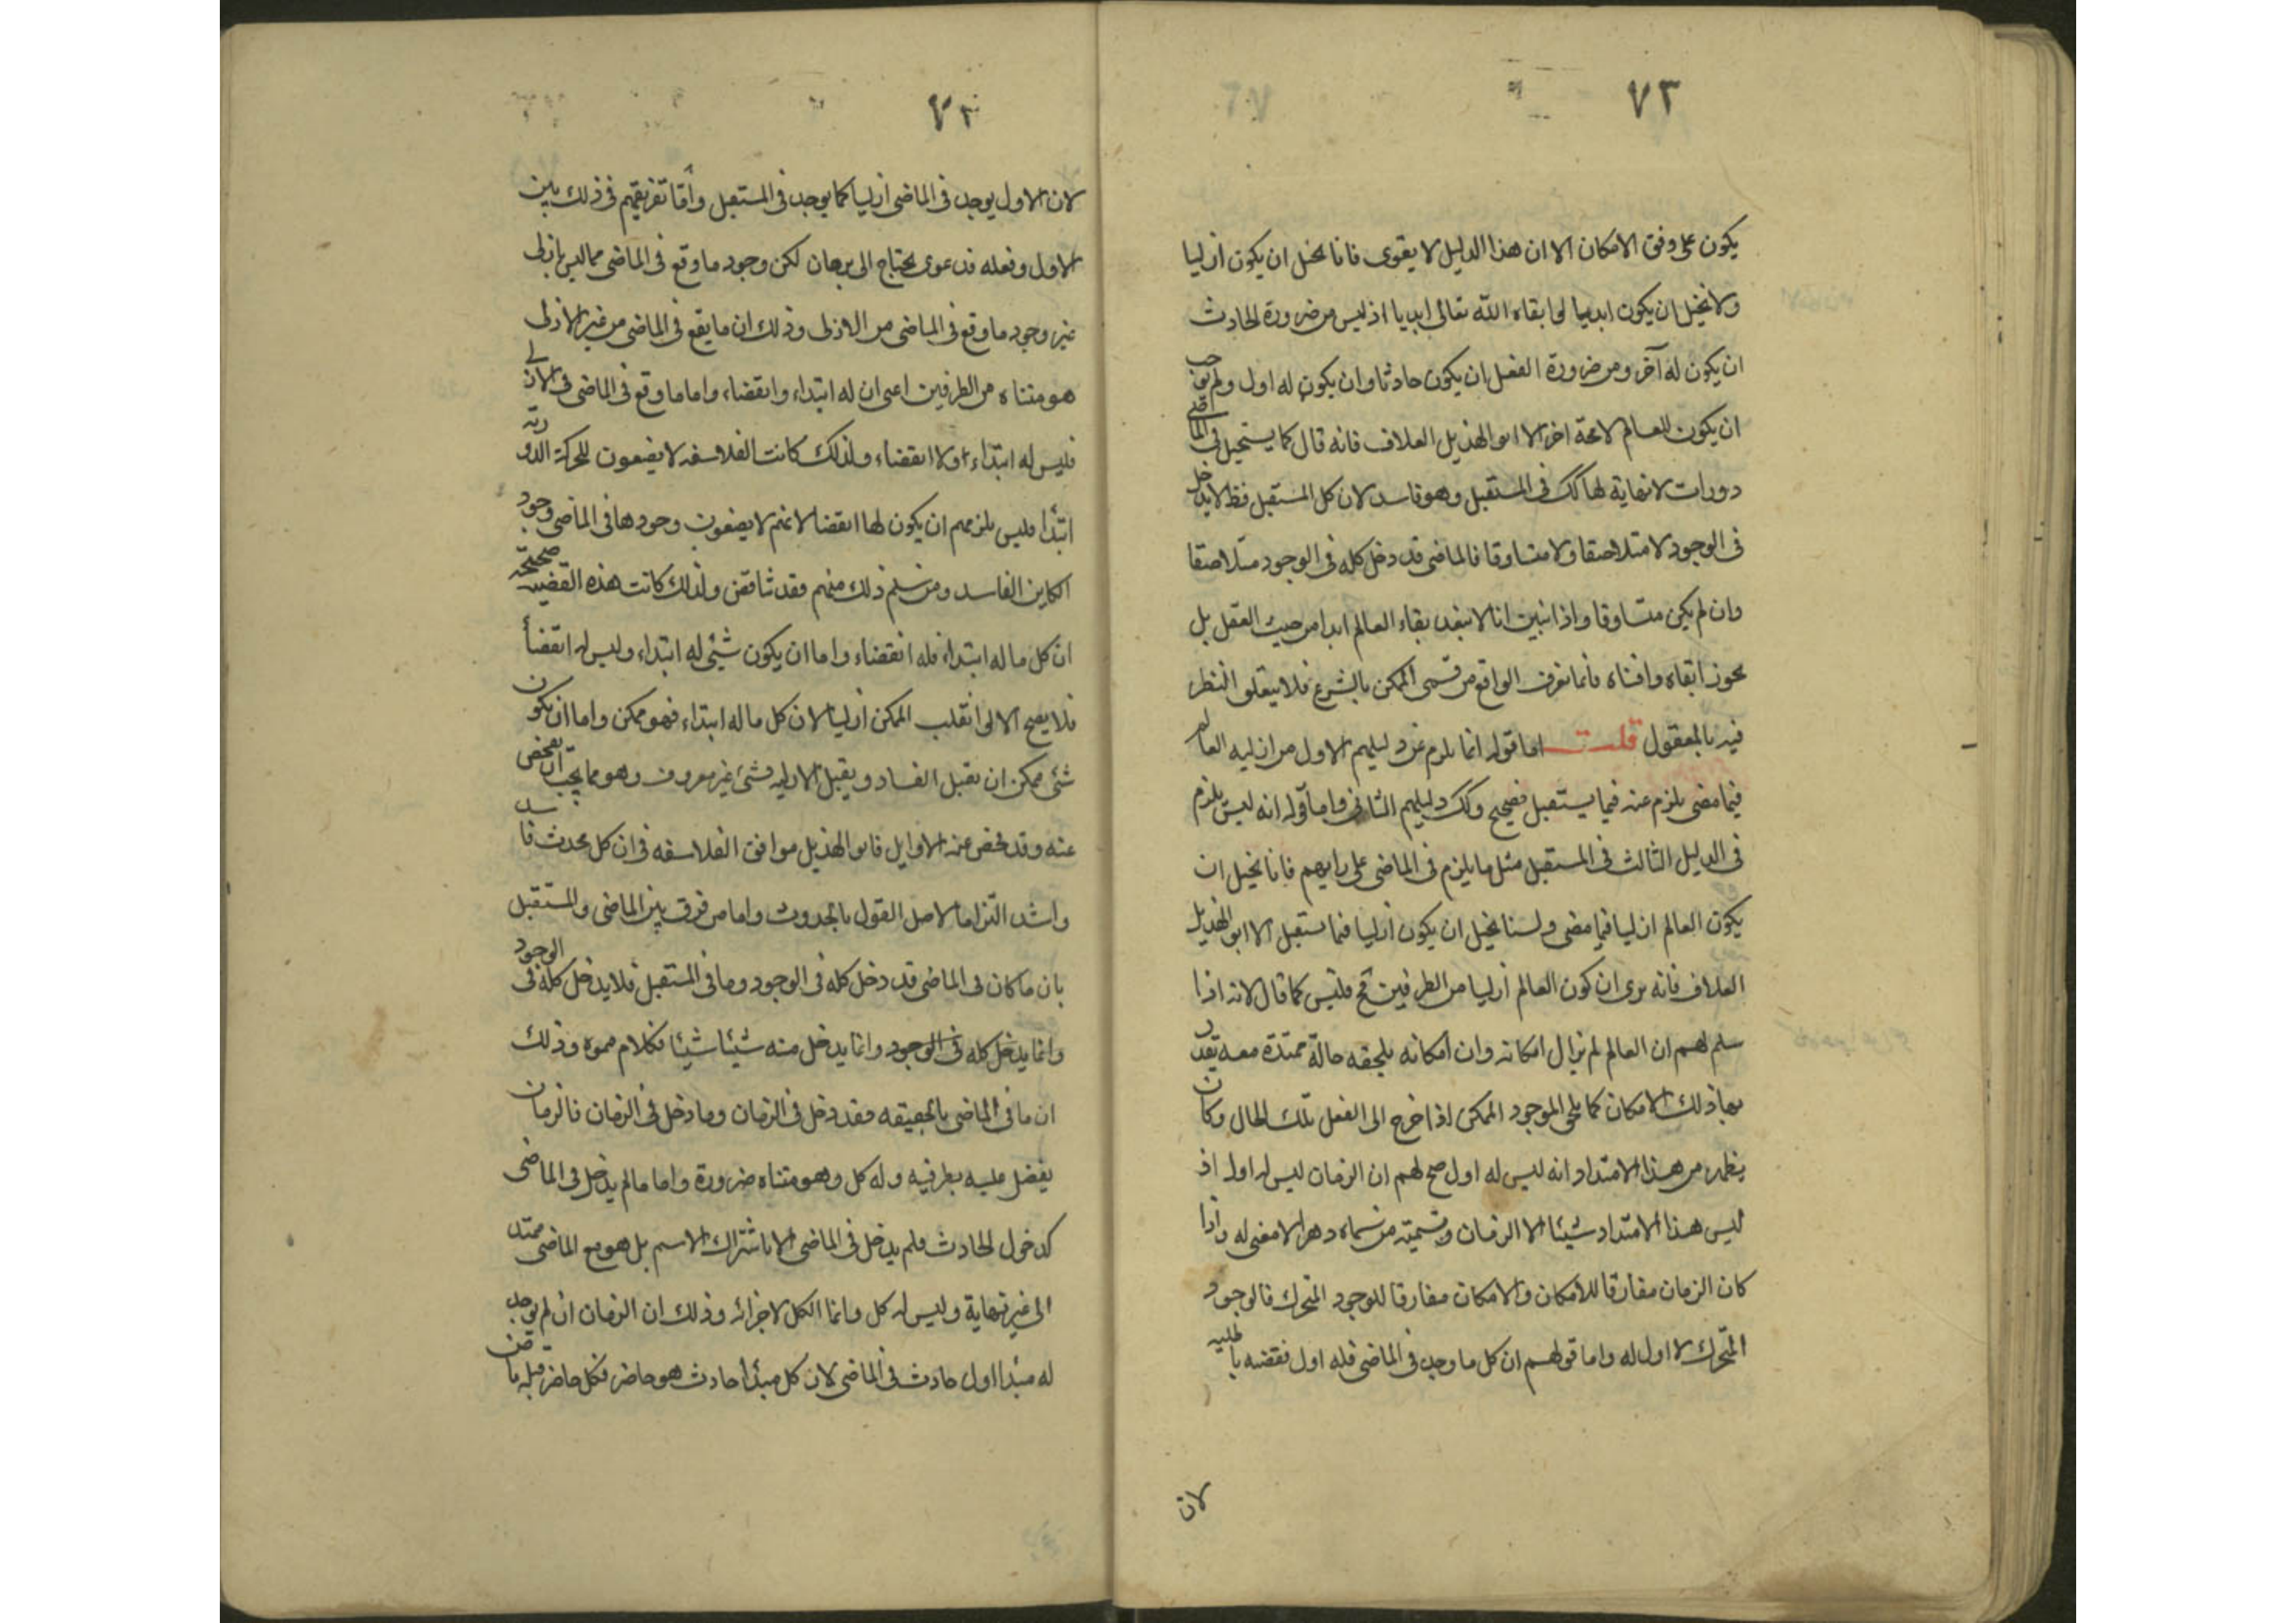 ٧٣
يكون على وفق الامكان الا ان هذا الدليل لا يقوى فانا نحيل ان يكون ازليا
ولا نحيل ان يكون ابديا لو ابقاه الله تعالى ابديا اذ ليس من ضرورة الحادث
ان يكون له آخر ومن ضرورة الفعل ان يكون حادثا وان يكون له اول ولم يوجب
ان يكون للعالم لا محة اخر الا ابو الهذيل العلاف فانه قال كما يستحيل في الماضي
دورات لا نهاية لها كك في المستقبل وهو فاسد لان كل المستقبل قط لا يدخل
في الوجود لا متلاحقا ولا متساوقا فالماضى قد دخل كله في الوجود متلاحقا
وان لم يكن متساوقا واذا تبين انا لا نبعد بقاء العالم ابدا من حيث العقل بل
نجوز ابقاه وافناه فانما نعرف الواقع من قسمى الممكن بالشرع فلا يتعلق النظر
فيه بالمعقول قلت اما قوله انما يلزم عن دليلهم الاول من ازليه العالم
فيما مضى يلزم عنه فيما يستقبل فصحيح وكك دليلهم الثانى واما قوله انه ليس يلزم
في الدليل الثالث في المستقبل مثل ما يلزم في الماضى على رايهم فانا نحيل ان
يكون العالم ازليا فيما مضى ولسنا نحيل ان يكون ازليا فيما يستقبل الا ابو الهذيل
العلاف فانه يرى ان كون العالم ازليا من الطرفين مح فليس كما قال لانه اذا
سلم لهم ان العالم لم يزال امكانه وان امكانه يلحقه حالة ممتدة معه يقدر
بها ذلك الامكان كما يلحق الموجود الممكن اذا خرج الى الفعل تلك الحال وكان
يظهر من هذا الامتداد انه ليس له اول صح لهم ان الزمان ليس له اول اذ
ليس هذا الامتداد شيئا الا الزمان وتسميته من سماه دهرا لا معنى له واذا
كان الزمان مقارنا للامكان والامكان مقارنا للوجود المتحرك فالوجود
المتحرك لا اول له واما قولهم ان كل ما وجد في الماضى فله اول فقضيه باطليه
لان
٧٣
لان الاول يوجد في الماضى ازليا كما يوجد في المستقبل وأما تفريقهم في ذلك بين
الاول وفعله فدعوى يحتاج الى برهان لكن وجود ما وقع في الماضى مما ليس بازلى
غير وجود ما وقع في الماضى من الازلى وذلك ان ما يقع في الماضى من غير الازلى
هو متناه من الطرفين اعنى ان له ابتداء وانقضاء، واما ما وقع في الماضى من الازلى
فليس له ابتداء اولا انقضاء، ولذلك كانت الفلاسفه لا يضعون للحركة الدورية
ابتدأ فليس يلزمهم ان يكون لها انقضا لانهم لا يضعون وجودها في الماضى وجود
الكاين الفاسد ومن سلم ذلك منهم فقد تناقض ولذلك كانت هذه القضيه صحيحة
ان كل ما له ابتداء فله انقضاء واما ان يكون شيئ له ابتداء وليس له انقضأ
فلا يصح الا لو انقلب الممكن ازليا لان كل ما له ابتداء فهو ممكن واما ان يكون
شئ ممكن ان يقبل الفساد ويقبل الازليه فشئ غير معروف وهو مما يجب ان يفحص
عنه وقد فحص عنه الاوايل فابو الهذيل موافق الفلاسفه في ان كل محدث فاسد
واشد التزاما لاصل القول بالحدوث واما من فرق بين الماضى والمستقبل
بان ما كان في الماضى قد دخل كله في الوجود وما في المستقبل فلا يدخل كله في الوجود
وانما يدخل كله في الوجود وانما يدخل منه شيئا شيئا فكلام مموه وذلك
ان ما في الماضى بالحقيقه فقد دخل في الزمان وما دخل في الزمان فالزمان
يفضل عليه بطرفيه وله كل وهو متناه ضرورة واما ما لم يدخل في الماضى
كدخول الحادث فلم يدخل في الماضى الا باشتراك الاسم بل هو مع الماضى ممتد
الى غير نهاية وليس له كل وانما الكل لاجزائه وذلك ان الزمان ان لم يوجد
له مبدا اول حادث في الماضى لان كل مبدأ حادث هو حاضر فكل حاضر قبله ماض